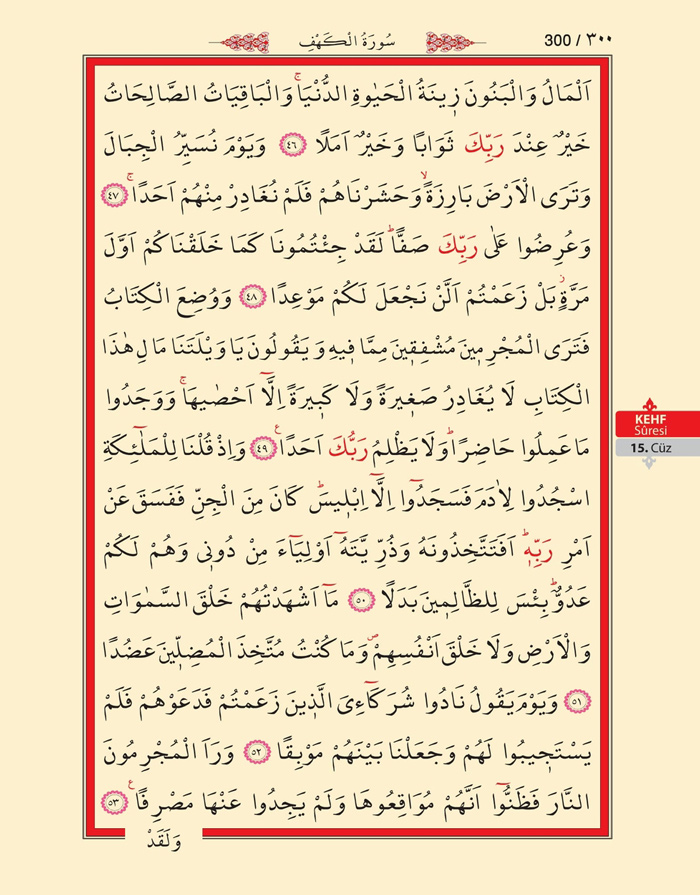 سُورَةُ الْكَهْفِ
300 / ٣٠٠
اَلْمَالُ وَالْبَنُونَ زٖينَةُ الْحَيٰوةِ الدُّنْيَاۚ وَالْبَاقِيَاتُ الصَّالِحَاتُ
خَيْرٌ عِنْدَ رَبِّكَ ثَوَابًا وَخَيْرٌ اَمَلًا ﴿٤٦﴾ وَيَوْمَ نُسَيِّرُ الْجِبَالَ
وَتَرَى الْاَرْضَ بَارِزَةًۙ وَحَشَرْنَاهُمْ فَلَمْ نُغَادِرْ مِنْهُمْ اَحَدًاۚ ﴿٤٧﴾
وَعُرِضُوا عَلٰى رَبِّكَ صَفًّاؕ لَقَدْ جِئْتُمُونَا كَمَا خَلَقْنَاكُمْ اَوَّلَ
مَرَّةٍۘ بَلْ زَعَمْتُمْ اَلَّنْ نَجْعَلَ لَكُمْ مَوْعِدًا ﴿٤٨﴾ وَوُضِعَ الْكِتَابُ
فَتَرَى الْمُجْرِمٖينَ مُشْفِقٖينَ مِمَّا فٖيهِ وَيَقُولُونَ يَا وَيْلَتَنَا مَالِ هٰذَا
الْكِتَابِ لَا يُغَادِرُ صَغٖيرَةً وَلَا كَبٖيرَةً اِلَّٓا اَحْصٰيهَاۚ وَوَجَدُوا
مَا عَمِلُوا حَاضِرًاؕ وَلَا يَظْلِمُ رَبُّكَ اَحَدًاࣖ ﴿٤٩﴾ وَاِذْ قُلْنَا لِلْمَلٰٓئِكَةِ
اسْجُدُوا لِاٰدَمَ فَسَجَدُٓوا اِلَّٓا اِبْلٖيسَؕ كَانَ مِنَ الْجِنِّ فَفَسَقَ عَنْ
اَمْرِ رَبِّهٖؕ اَفَتَتَّخِذُونَهُ وَذُرِّيَّتَهُٓ اَوْلِيَٓاءَ مِنْ دُونٖى وَهُمْ لَكُمْ
عَدُوٌّؕ بِئْسَ لِلظَّالِمٖينَ بَدَلًا ﴿٥٠﴾ مَٓا اَشْهَدْتُهُمْ خَلْقَ السَّمٰوَاتِ
وَالْاَرْضِ وَلَا خَلْقَ اَنْفُسِهِمْࣕ وَمَا كُنْتُ مُتَّخِذَ الْمُضِلّٖينَ عَضُدًا
﴿٥١﴾ وَيَوْمَ يَقُولُ نَادُوا شُرَكَٓاءِىَ الَّذٖينَ زَعَمْتُمْ فَدَعَوْهُمْ فَلَمْ
يَسْتَجٖيبُوا لَهُمْ وَجَعَلْنَا بَيْنَهُمْ مَوْبِقًا ﴿٥٢﴾ وَرَاَ الْمُجْرِمُونَ
النَّارَ فَظَنُّٓوا اَنَّهُمْ مُوَاقِعُوهَا وَلَمْ يَجِدُوا عَنْهَا مَصْرِفًاࣖ ﴿٥٣﴾
وَلَقَدْ
KEHF
Sûresi
15. Cüz